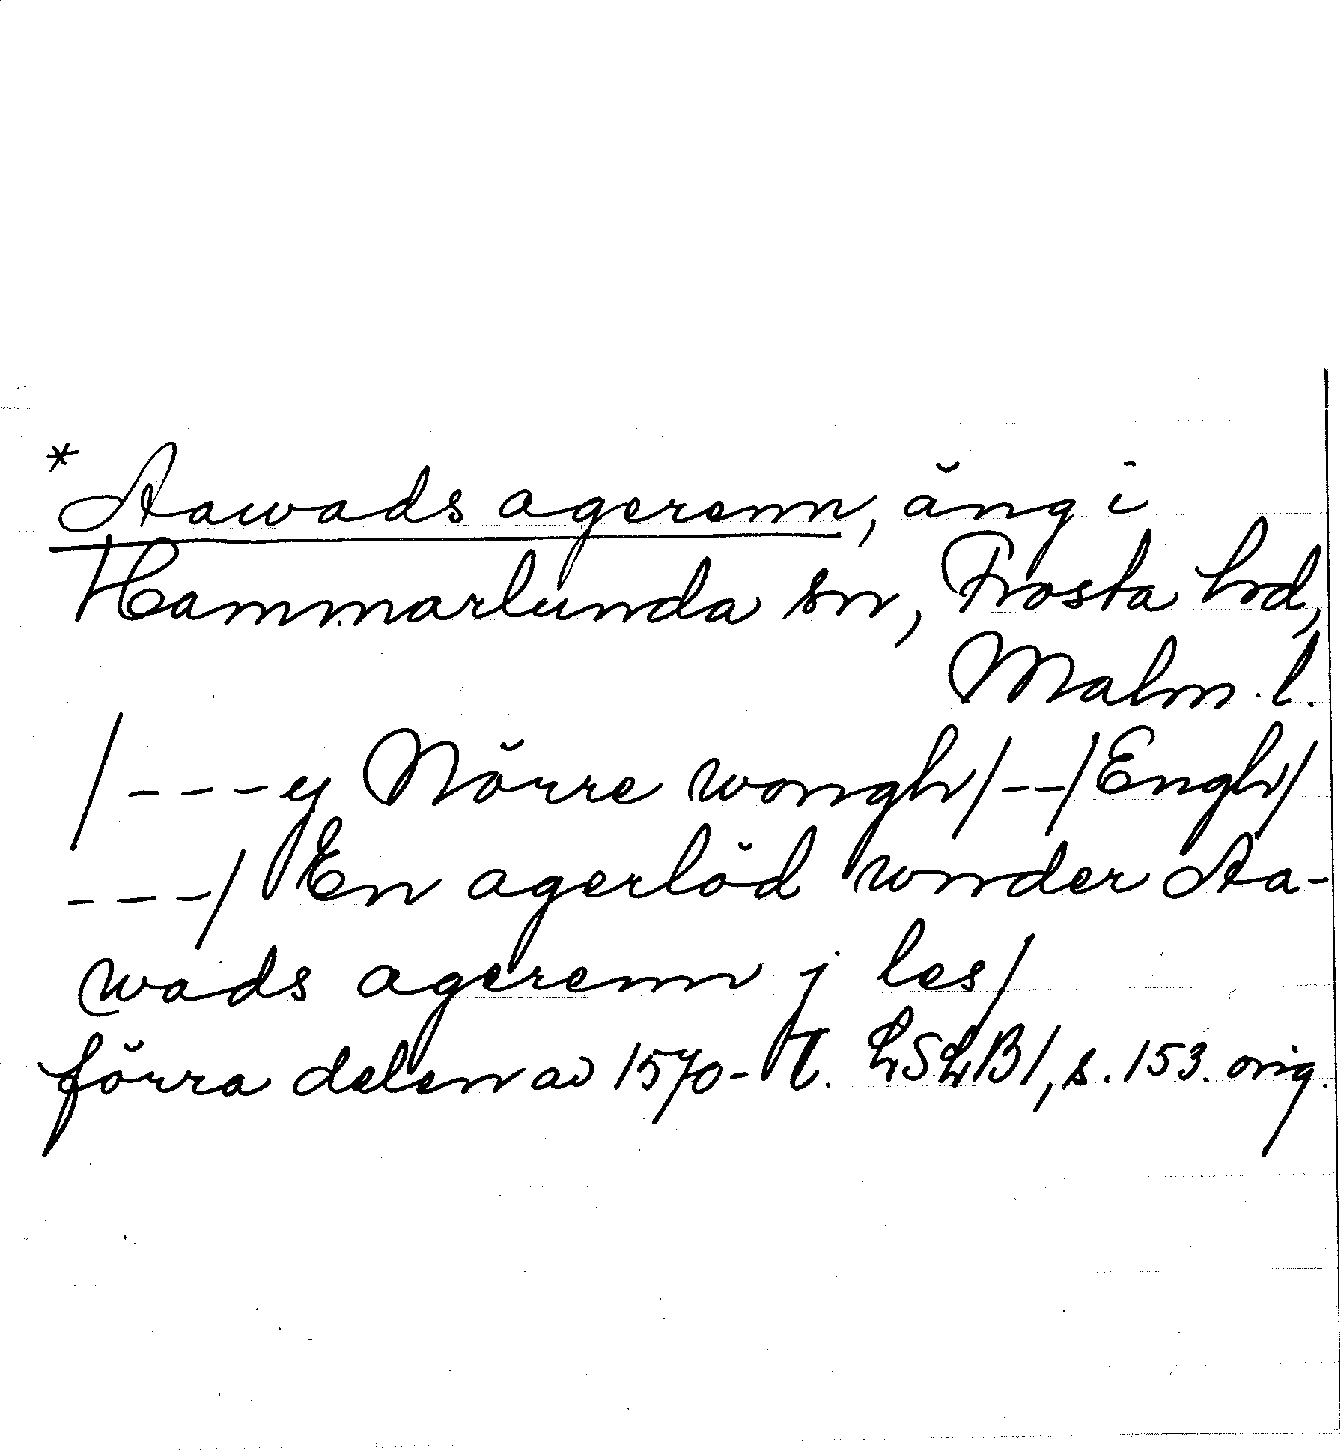 *Aawads agerenn, äng i
Hammarlunda sn, Frosta hd,
Malm. l.
/---ij Nörre wongh/--/Engh/
---/ En agerlöd wnder Aa-
wads agerenn j les/
förra delen av 1570-t. LSLB1, s. 153. orig.